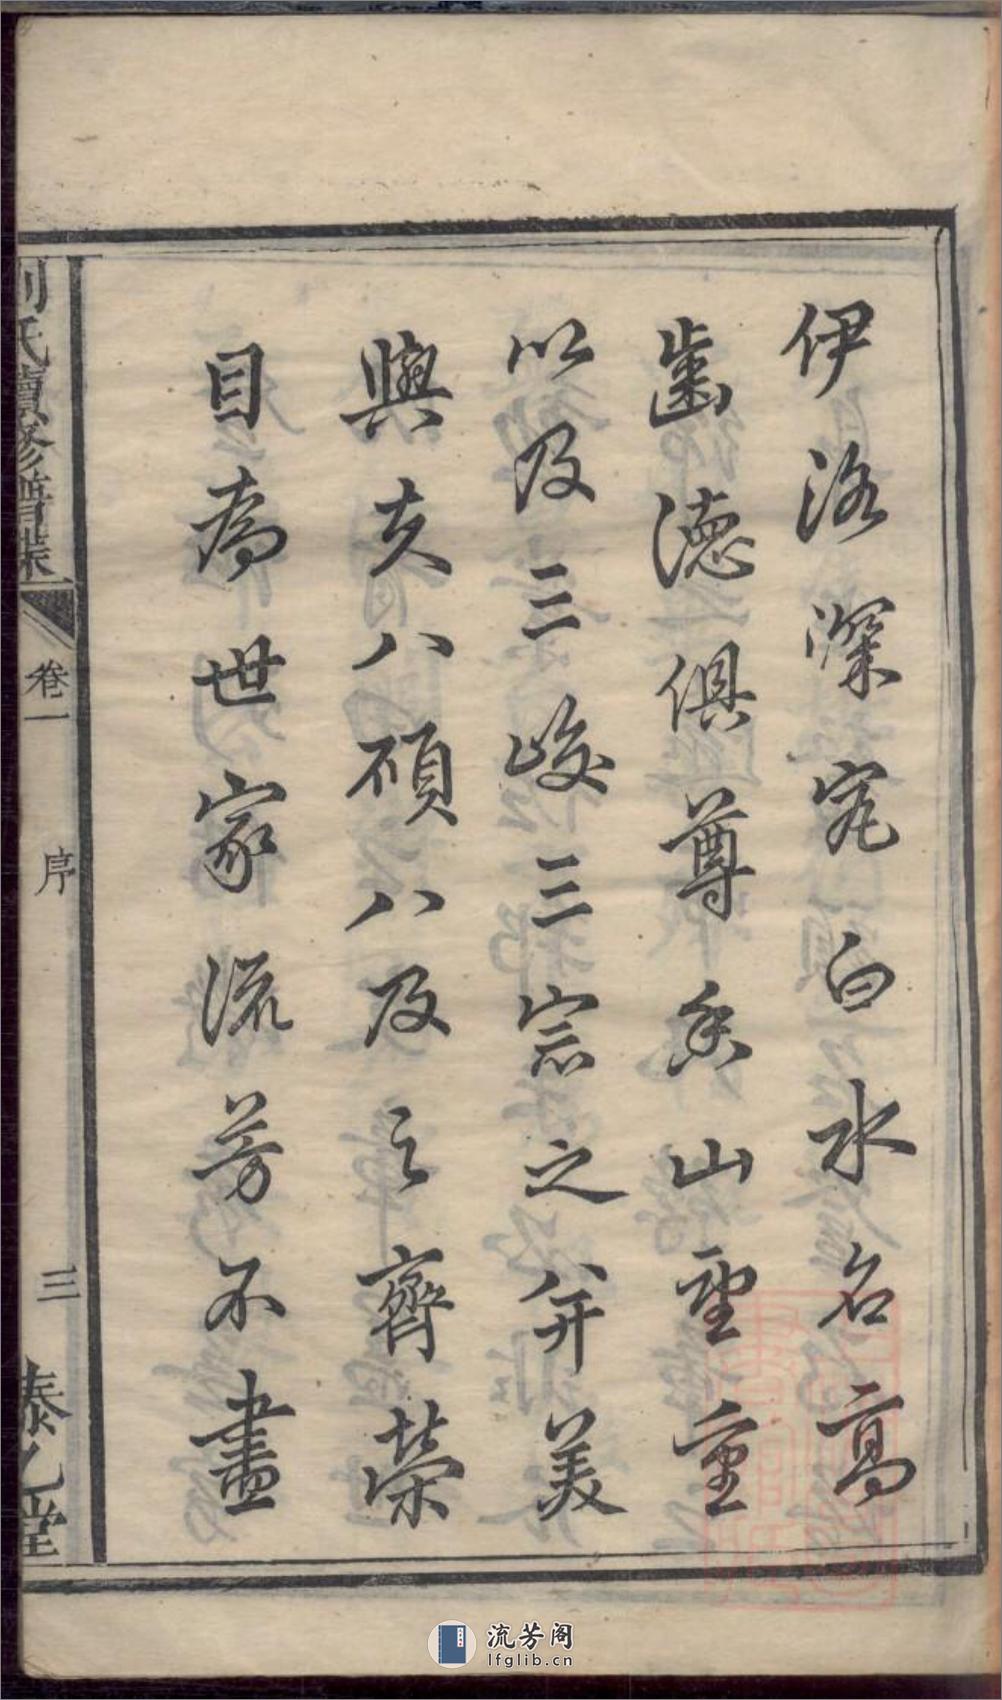 伊洛深究白水名高
齒德俱尊香山望重
以及三峻三宗之并美
與夫八碩八及之齊榮
目為世家流芳不盡
劉氏續修譜集
卷一
序
三
泰乙堂
流芳阁
lfglib.cn